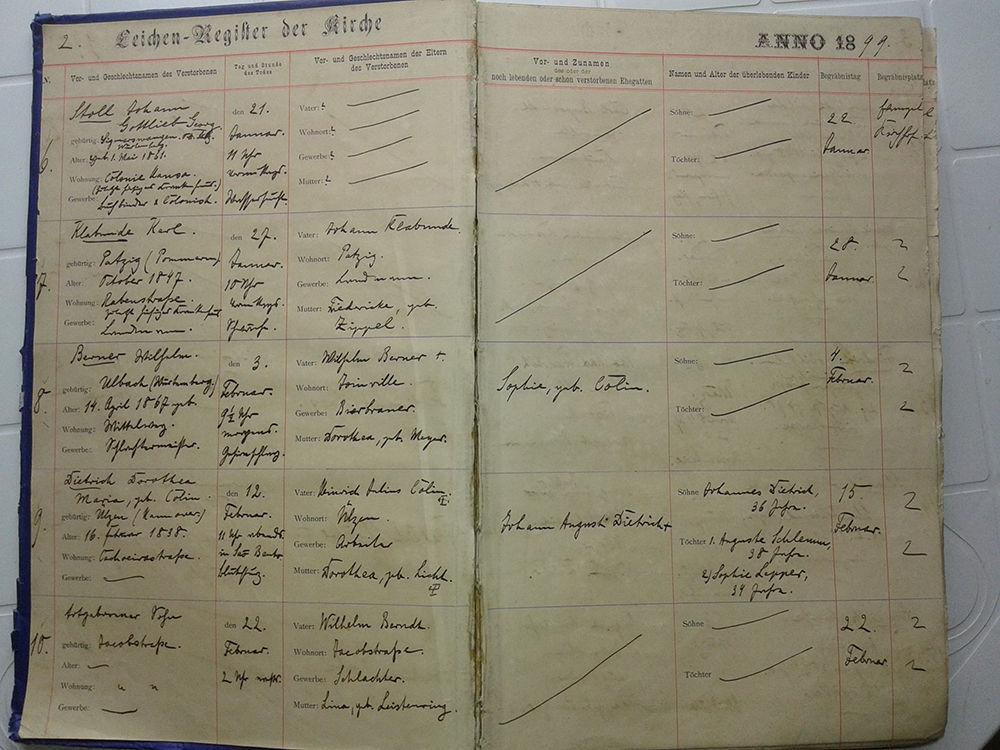 2. Leichen-Register der Kirche
ANNO 1899.
N.
Vor- und Geschlechtsnamen des Verstorbenen
Tag und Stunde
des Todes
Vor- und Geschlechtsnamen der Eltern
des Verstorbenen
Vor- und Zunamen
des oder der
noch lebenden oder schon verstorbenen Ehegatten
Namen und Alter der überlebenden Kinder
Begräbnistag
Begräbnisplatz
6
Stoll Johann
Gottlieb Georg
gebürtig:
Alter: geb. 1. Mai 1861.
Wohnung: Colonie Hansa.
Gewerbe: Buchbinder & Colonist.
den 21.
Januar.
11 Uhr
Vater:
Wohnort:
Gewerbe:
Mutter:
Söhne:
Töchter:
22
Januar
7.
Klabunde Karl.
gebürtig: Patzig (Pommern)
Alter: October 1847.
Wohnung: Rabenstraße.
Gewerbe: Landmann.
den 27.
Januar.
10 Uhr
Vater: Johann Klabunde.
Wohnort: Patzig.
Gewerbe: Landmann.
Mutter: Friedericke, geb.
Zippel.
Söhne:
Töchter:
28.
Januar.
8.
Berner Wilhelm.
gebürtig: Ulbach (Würtemberg.)
Alter: 14. April 1867 geb.
Wohnung: Mittelweg.
Gewerbe: Schlachtermeister.
den 3.
Februar.
9½ Uhr
morgens.
Vater: Wilhelm Berner +.
Wohnort: Joinville.
Gewerbe: Bierbrauer.
Mutter: Dorothea, geb. Meyer.
Sophie, geb. Colin.
Söhne:
Töchter:
4.
Februar.
9
Dietrich Dorothea
Maria, geb. Colin.
gebürtig: Ulzen (Hannover)
Alter: 16. Februar 1838.
Wohnung:
Gewerbe:
den 12.
Februar.
11 Uhr abends.
Vater: Heinrich Julius Colin.
Wohnort: Ulzen.
Gewerbe: Arbeiter
Mutter: Dorothea, geb. Licht.
Johann August Dietrich +
Söhne Johannes Dietrich,
36 Jahre.
Töchter 1. Auguste Schlemm,
38 Jahre.
2) Sophie Lepper,
34 Jahre.
15.
Februar.
10.
Totgeborener Sohn
gebürtig: Jacobstraße.
Alter:
Wohnung: " "
Gewerbe:
den 22.
Februar.
2 Uhr
Vater: Wilhelm Berndt.
Wohnort: Jacobstraße.
Gewerbe: Schlachter.
Mutter: Lina, geb.
Söhne
Töchter
22.
Februar